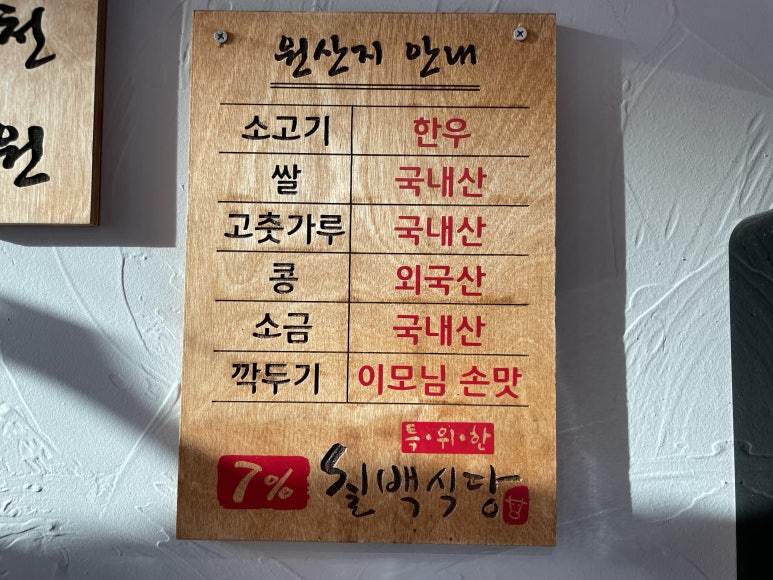 천
원
원산지 안내
소고기 한우
쌀 국내산
고춧가루 국내산
콩 외국산
소금 국내산
깍두기 이모님 손맛
특·위·한
7% 칠백식당